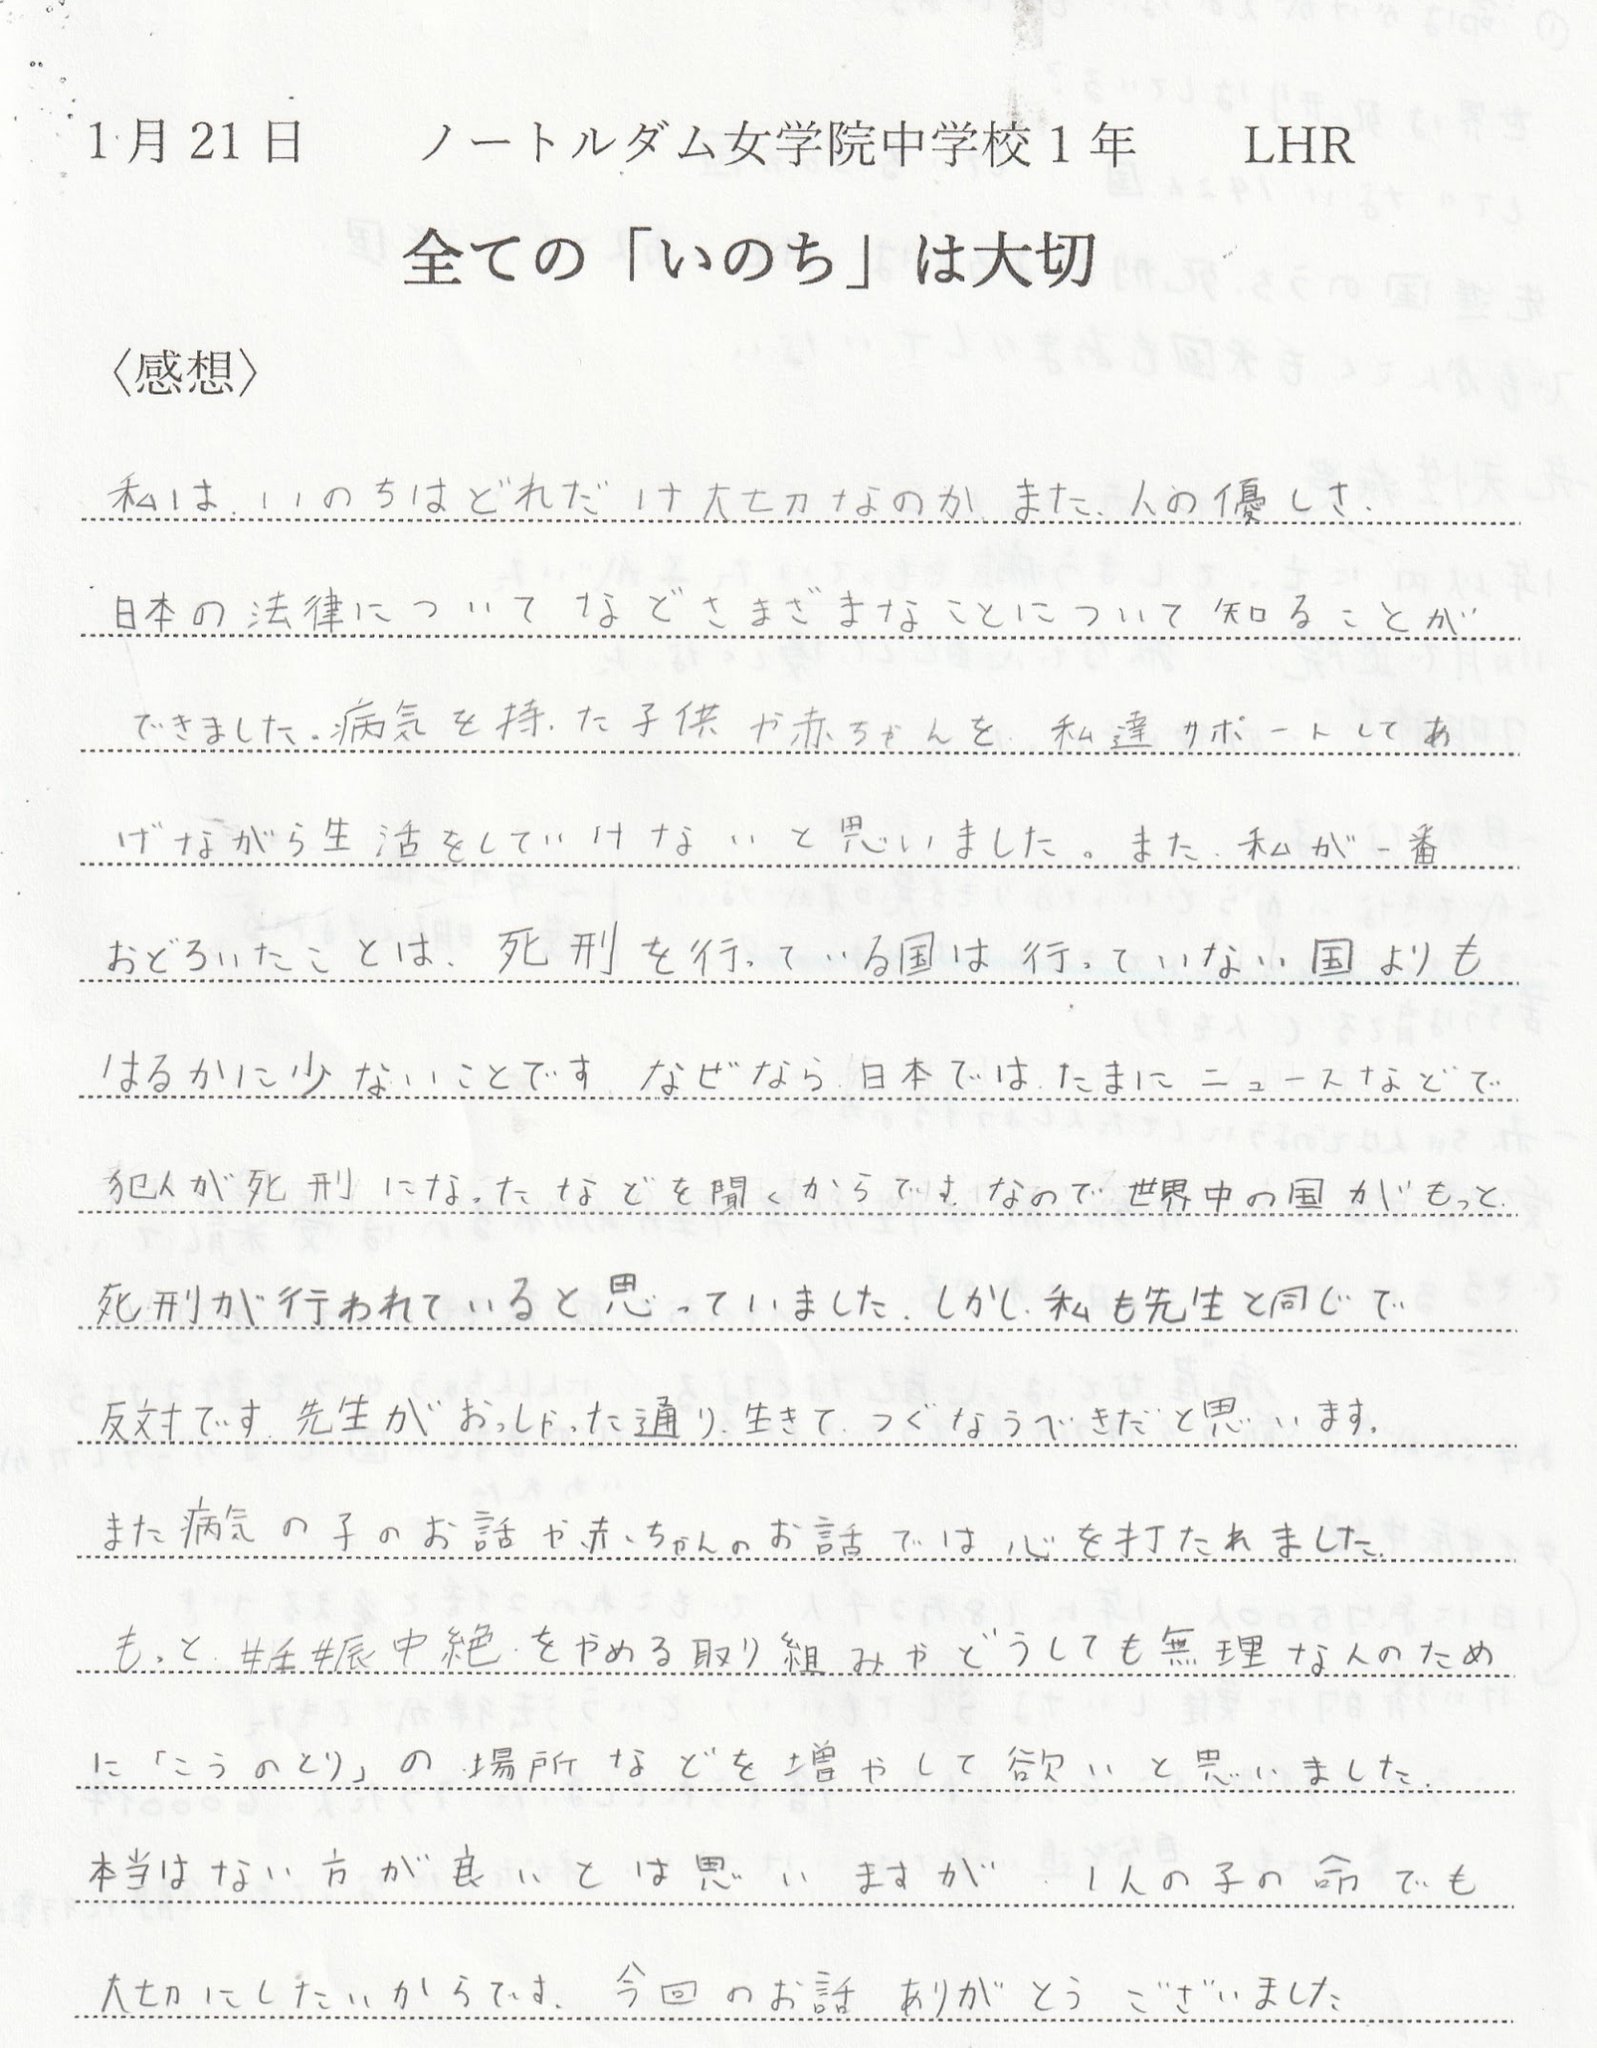 1月21日　ノートルダム女学院中学校1年　LHR
全ての「いのち」は大切
〈感想〉
私は、いのちはどれだけ大切なのか、また、人の優しさ、
日本の法律についてなどさまざまなことについて知ることが
できました。病気を持った子供や赤ちゃんを、私達サポートしてあ
げながら生活をしていけないと思いました。また、私が一番
おどろいたことは、死刑を行っている国は行っていない国よりも
はるかに少ないことです。なぜなら、日本では、たまにニュースなどで
犯人が死刑になったなどを聞くからです。なので世界中の国がもっと、
死刑が行われていると思っていました。しかし、私も先生と同じで
反対です。先生がおっしゃった通り、生きて、つぐなうべきだと思います。
また病気の子のお話や赤ちゃんのお話では心を打たれました。
もっと、妊娠中絶をやめる取り組みやどうしても無理な人のため
に「こうのとり」の場所などを増やして欲いと思いました。
本当はない方が良いとは思いますが、1人の子の命でも
大切にしたいからです。今回のお話ありがとうございました